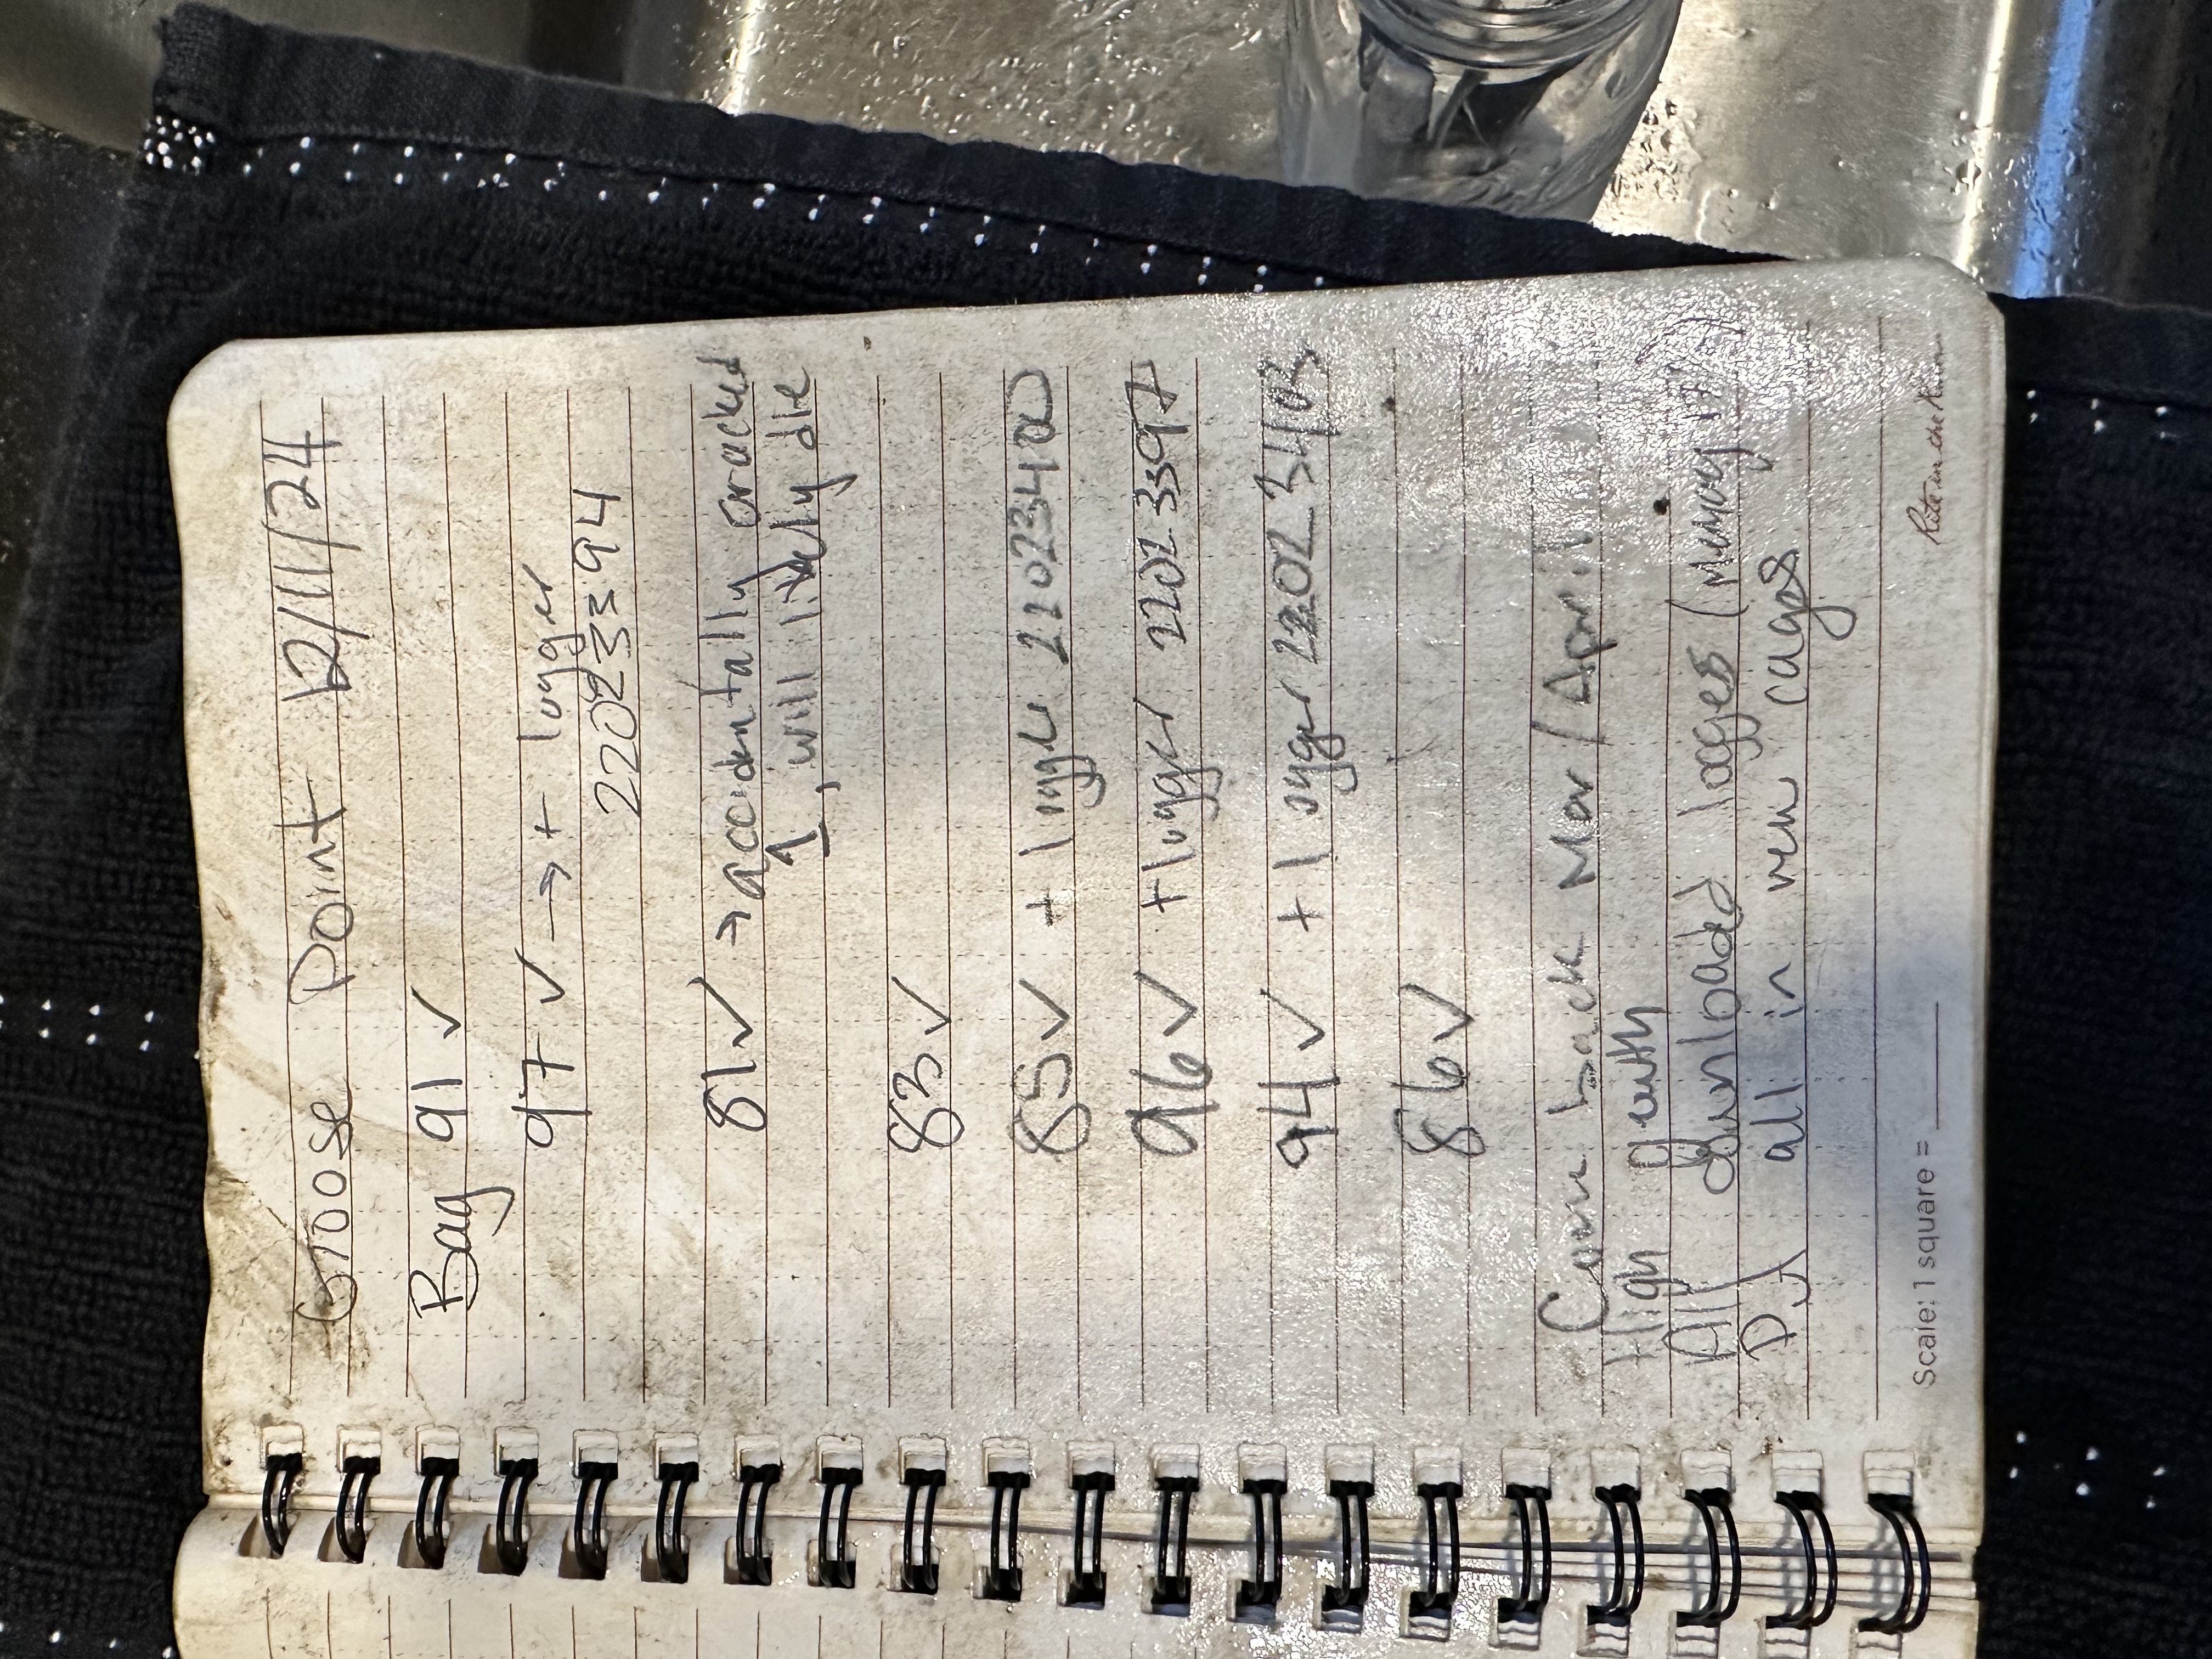 Goose Point 12/11/24
Bag 91 ✓
97 ✓ → + logger
22023394
81 ✓ → accidentally cracked
1, will likely die
83 ✓
85 ✓ + logger 22023400
96 ✓ + logger 22023397
94 ✓ + logger 22023403
86 ✓
Come back Mar/April
High growth
All downloaded loggers (Memory
Put all in new cages
Scale: 1 square =
Rite in the Rain